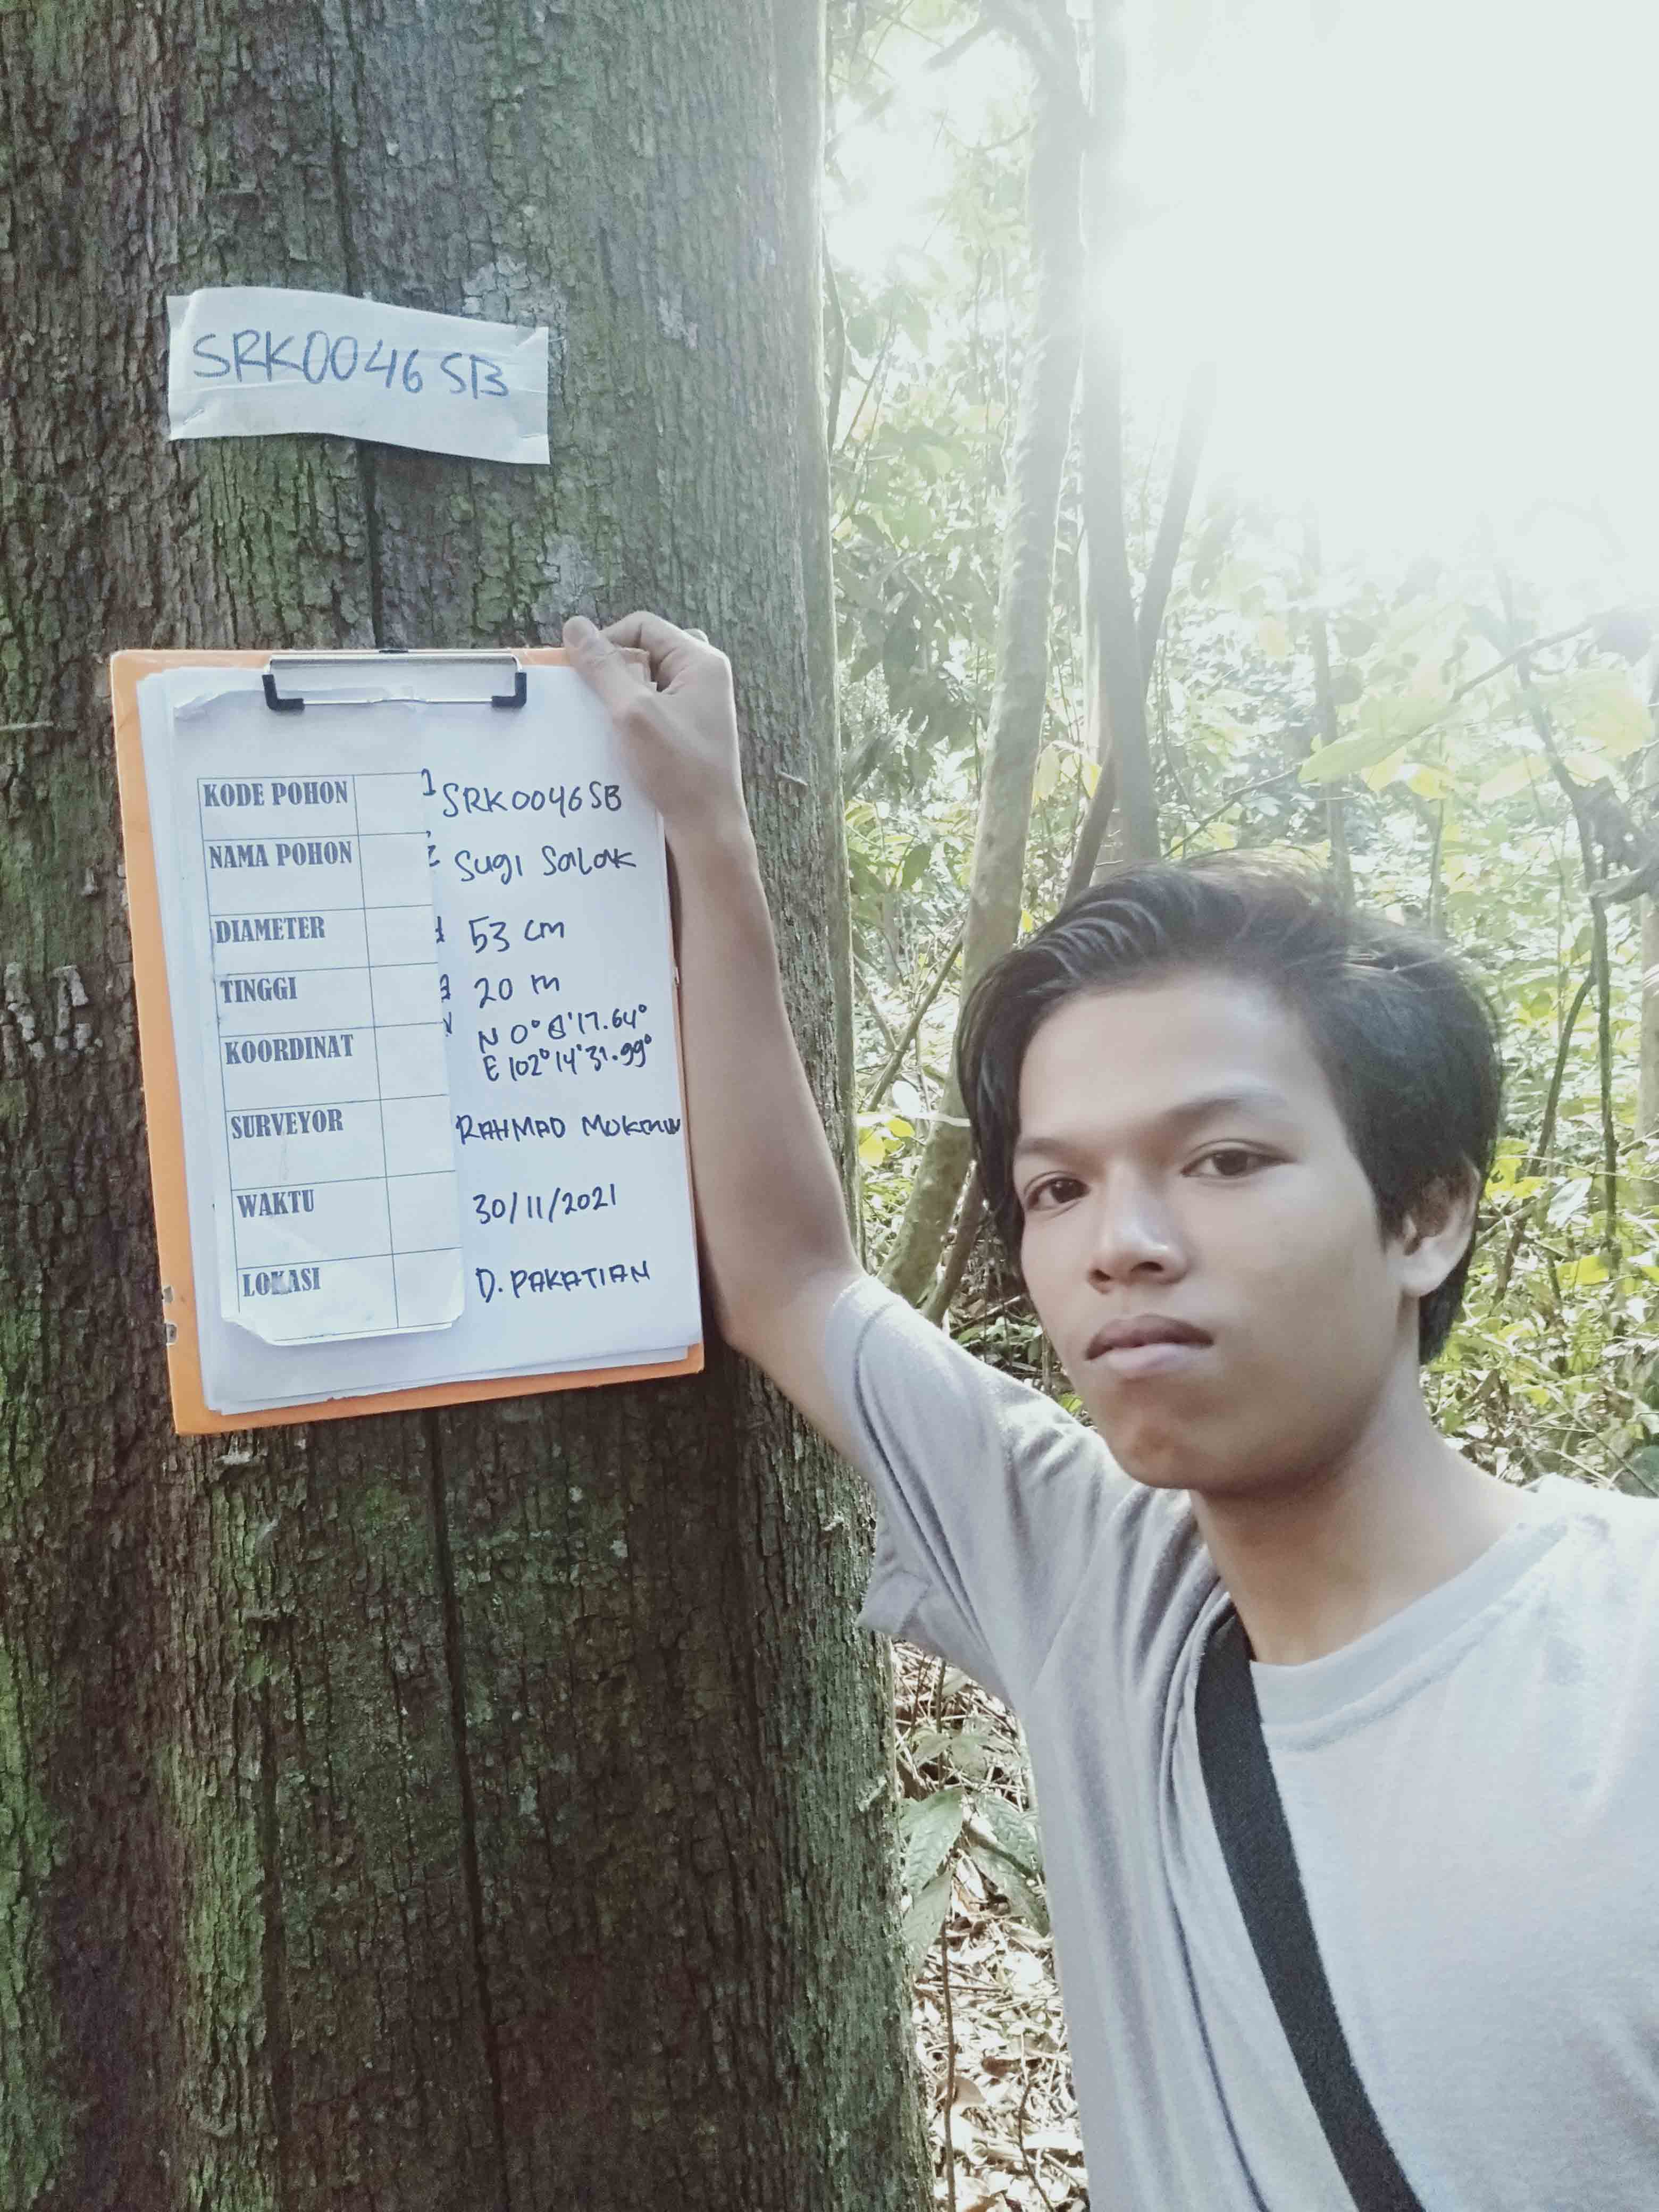 SRK0046SB
KODE POHON SRK0046SB
NAMA POHON Sugi Salak
DIAMETER 53 cm
TINGGI 20 m
KOORDINAT N 0° 8'17.64°
E 102° 14'31.99°
SURVEYOR RAHMAD
WAKTU 30/11/2021
LOKASI D. PAKATIAN